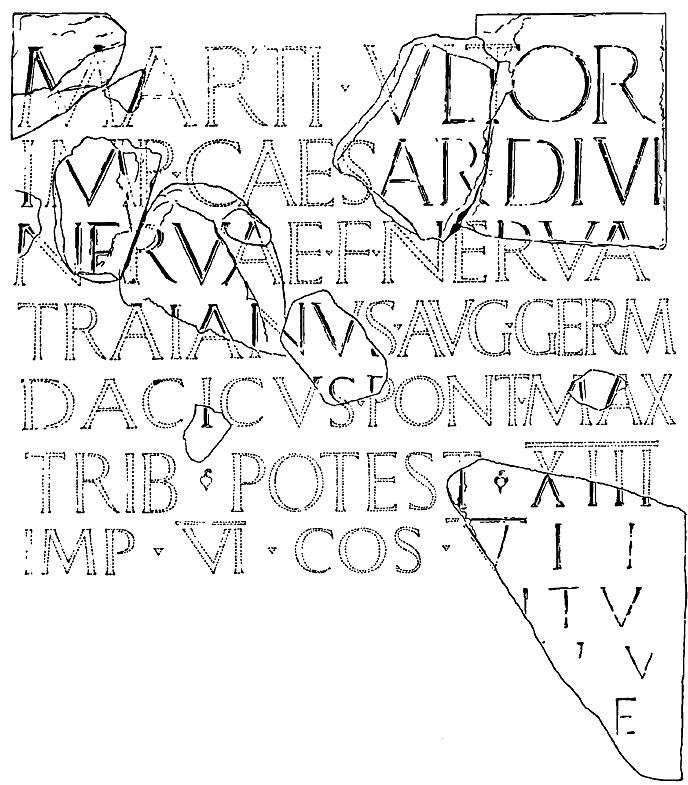 MARTI · VLTOR
IMP·CAESAR DIVI
NERVAE·F·NERVA
TRAIANVS·AVG·GERM
DACICVS·PONT·MAX
TRIB · POTEST · XIII
IMP · VI · COS · V I I
IT V
V
E